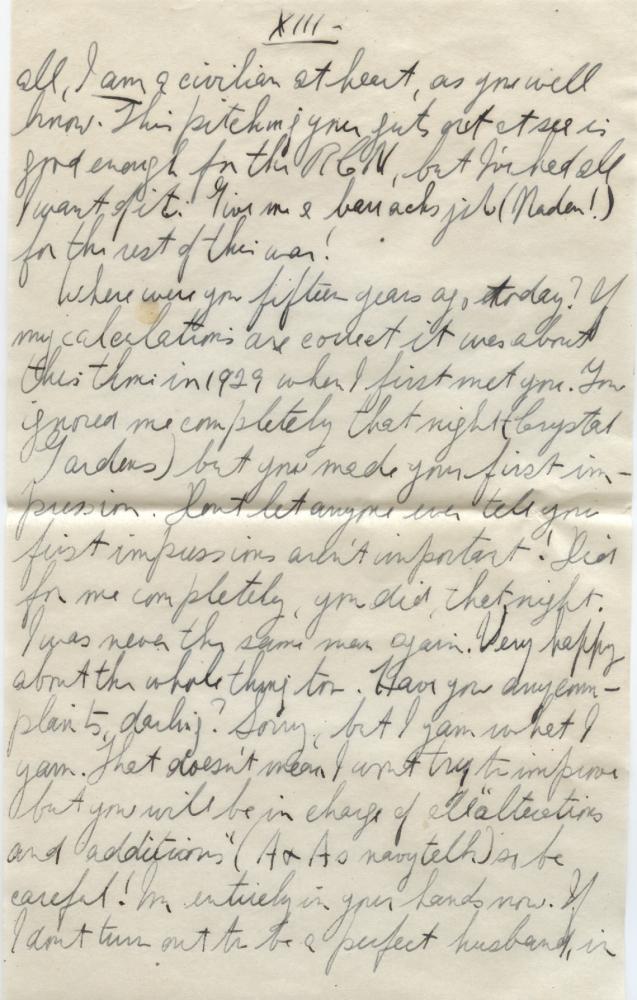 XIII -
all, I am a civilian at heart, as you well
know. This pitching your guts out at sea is
good enough for the RCN, but I've had all
I want of it. Give me a barracks job (Naden!)
for the rest of this war!
Where were you fifteen years ago today? If
my calculations are correct it was about
this time in 1929 when I first met you. You
ignored me completely that night (Crystal
Gardens) but you made your first im-
pression. Dont let anyone ever tell you
first impressions aren't important! Did
for me completely, you did, that night.
I was never the same man again. Very happy
about the whole thing too. Have you any com-
plaints, darling? Sorry, but I yam what I
yam. That doesn't mean I won't try to improve
but you will be in charge of all "alterations
and additions" (A & As navy talk) so be
careful! I'm entirely in your hands now. If
I don't turn out to be a perfect husband, in